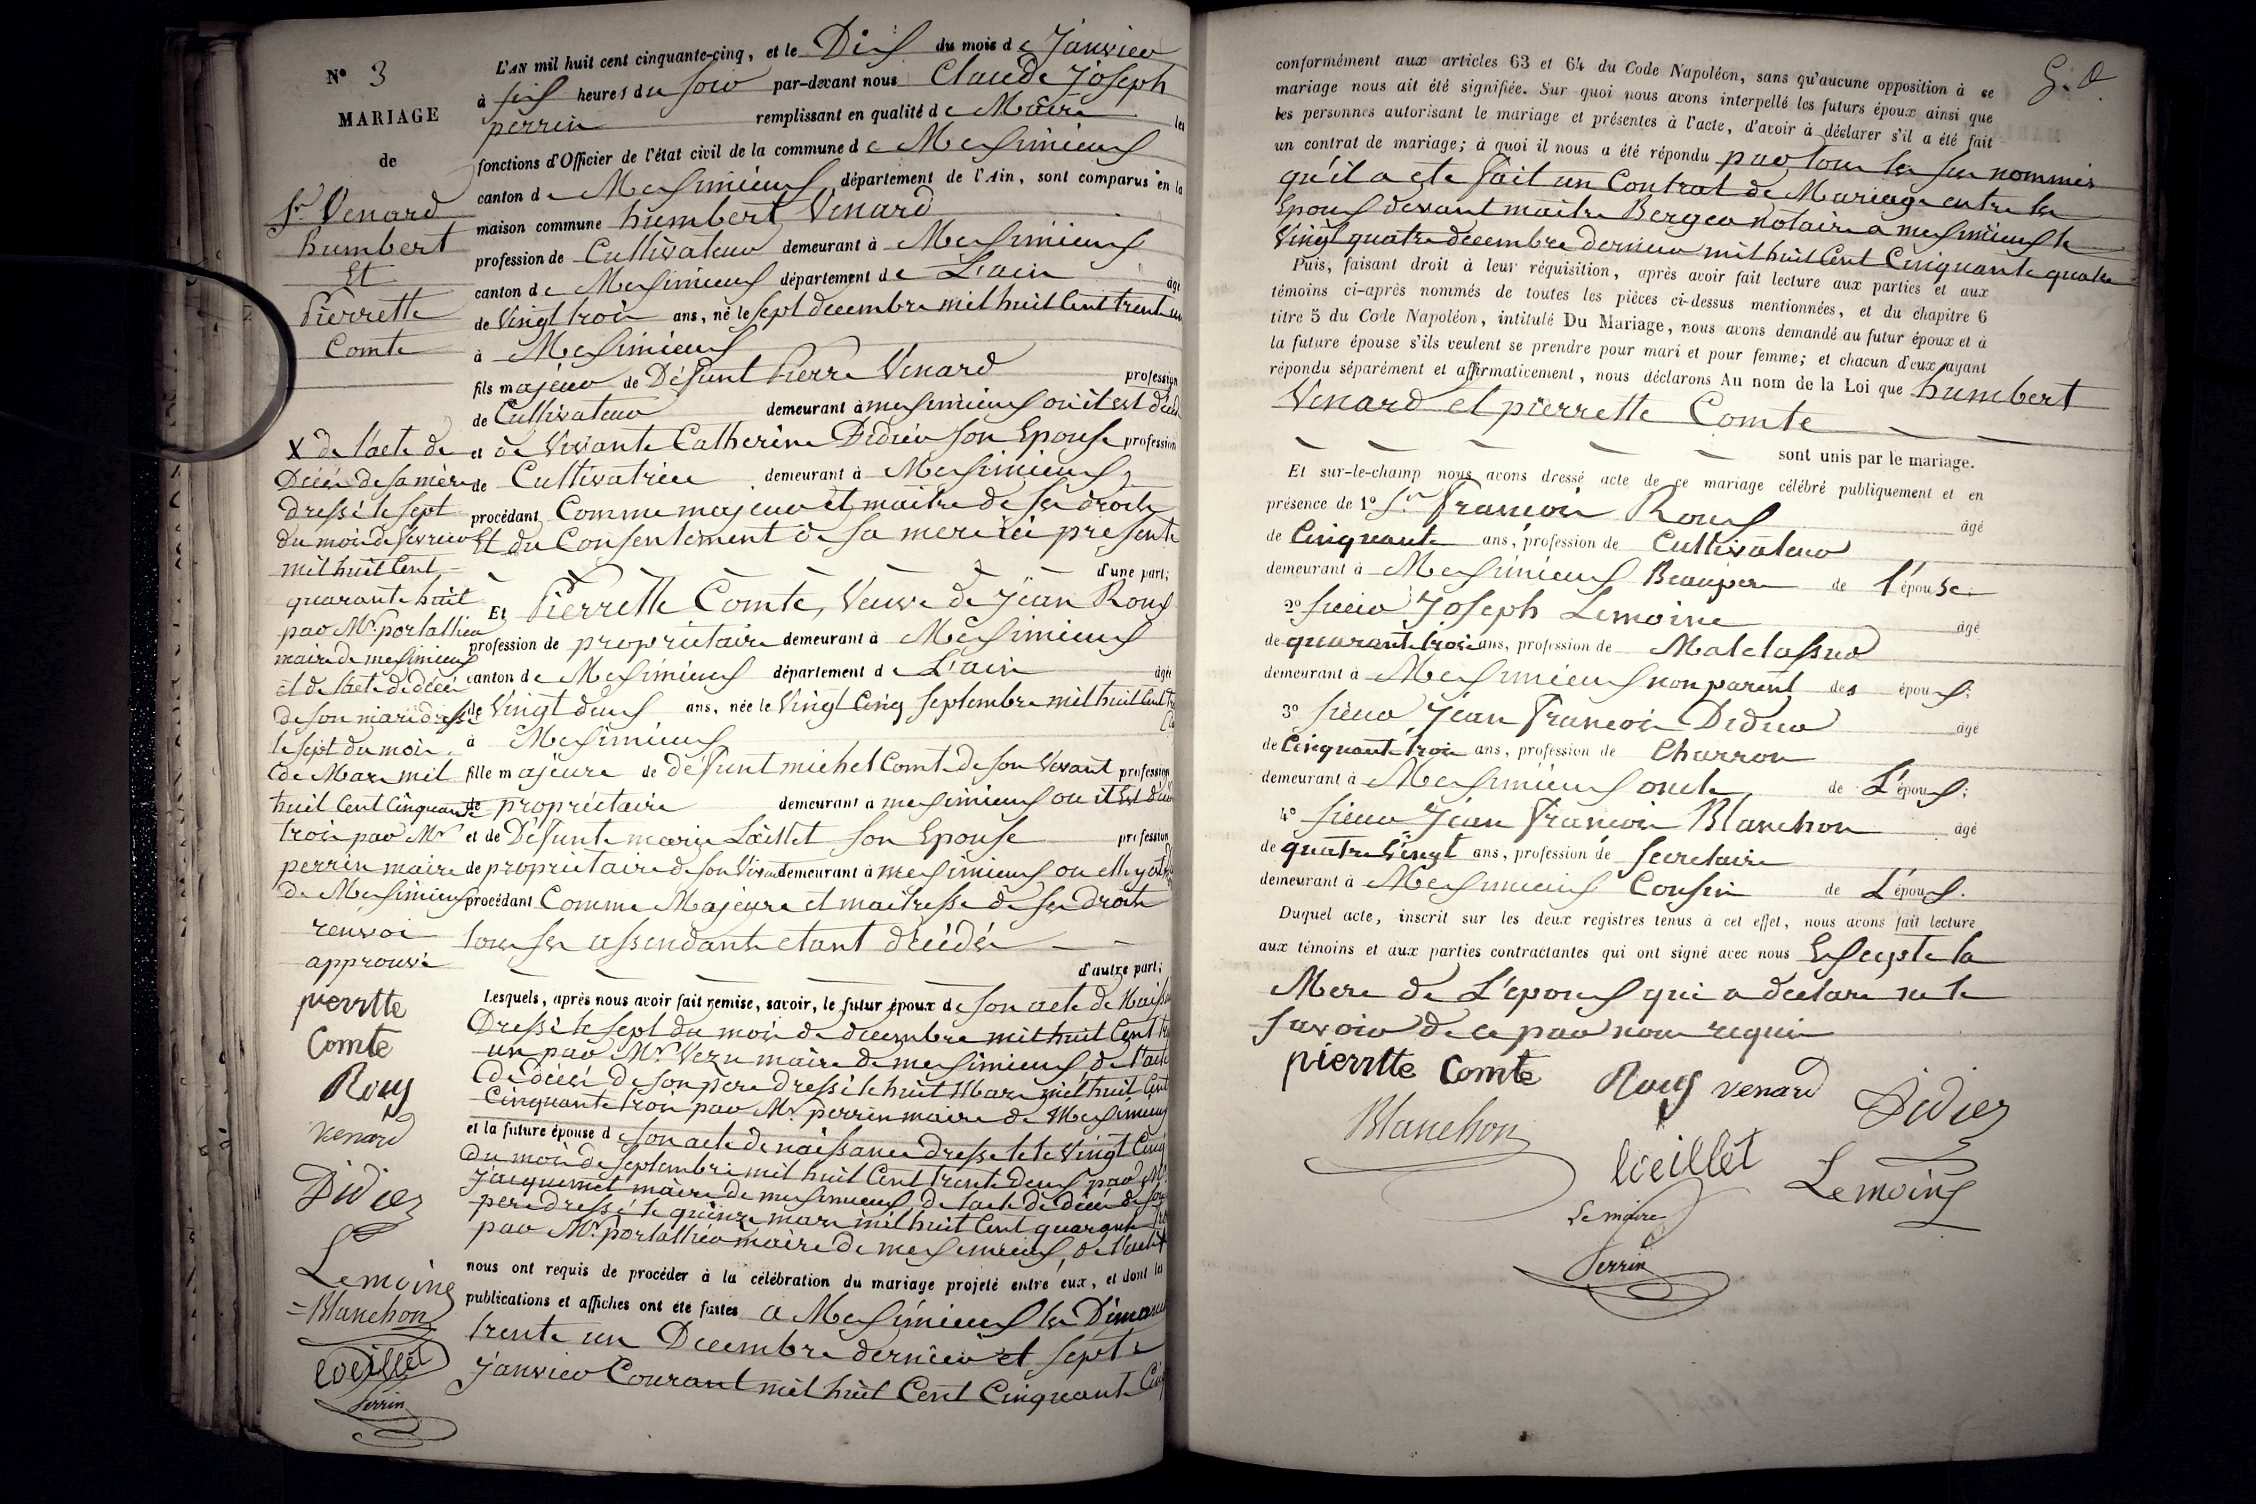 N° 3
MARIAGE
de
Sr Venard
humbert
Et
Pièrrette
Comte
X de l'acte de
Décès de sa mère
dressé le sept
du mois de fevrier
mil huit Cent
quarante huit
par Mr. portallier
maire de meximieux
et de l'acte de décès
de son mari dressé
le sept du mois
de Mars mil
huit Cent Cinquante
trois par Mr
perrin maire
de Meximieux
renvoi
approuvé
pierrtte
Comte
Roux
venard
Didier
Lemoine
Blanchon
loeillet
Perrin
L'AN mil huit cent cinquante-cinq, et le Dix du mois de Janvier
à six heures du soir par-devant nous Claude Joseph
perrin remplissant en qualité de Maire les
fonctions d'Officier de l'état civil de la commune de Meximieux
canton de Meximieux département de l'Ain, sont comparus en la
maison commune humbert Venard
profession de Cultivateur demeurant à Meximieux
canton de Meximieux département de L'ain âgé
de Vingt trois ans, né le sept decembre mil huit Cent trente un
à Meximieux
fils majeur de Défunt Pierre Venard profession
de Cultivateur demeurant à meximieux ou il est décédé
et de Vivante Catherine Didier son Epouse profession
de Cultivatrice demeurant à Meximieux
procédant Comme majeur et maitre de ses droits
Et du Consentement de sa mere ici presente
d'une part;
Et Pierrette Comte, Veuve de Jean Roux
profession de propriétaire demeurant à Meximieux
canton de Meximieux département de L'ain âgée
de Vingt deux ans, née le Vingt Cinq septembre mil huit Cent
à Meximieux
fille majeure de défunt michel Comte de son Vivant profession
de propriétaire demeurant à meximieux ou il est décédé
et de Défunte marie Loëillet son Epouse profession
de propriétaire de son Vivant demeurant à meximieux ou elle y est
procédant Comme Majeure et maitresse de ses droits
tous ses assendants etant décédés
d'autre part;
Lesquels, après nous avoir fait remise, savoir, le futur époux de son acte de Naissance
Dressé le sept du mois de decembre mil huit Cent trente
un par Mr Vezu maire de meximieux de l'acte
de décès de son père dressé le huit Mars mil huit Cent
Cinquante trois par Mr perrin maire de Meximieux
et la future épouse de son acte de naissance dressé le Vingt Cinq
du mois de septembre mil huit Cent trente Deux par Mr.
Jacquemet maire de meximieux de l'acte de décès de son
pere dressé le quinze mars mil huit Cent quarante
par Mr. portallier maire de meximieux, de l'acte X
nous ont requis de procéder à la célébration du mariage projeté entre eux, et dont les
publications et affiches ont été faites a Meximieux les Dimanches
trente un Decembre dernier et sept
Janvier Courant mil huit Cent Cinquante Cinq
conformément aux articles 63 et 64 du Code Napoléon, sans qu'aucune opposition à ce
mariage nous ait été signifiée. Sur quoi nous avons interpellé les futurs époux ainsi que
les personnes autorisant le mariage et présentes à l'acte, d'avoir à déclarer s'il a été fait
un contrat de mariage; à quoi il nous a été répondu par tous les sus nommés
qu'il a été fait un Contrat de Mariage entre les
Epoux devant maitre Berger Notaire a meximieux le
Vingt quatre decembre dernier mil huit Cent Cinquante quatre
Puis, faisant droit à leur réquisition, après avoir fait lecture aux parties et aux
témoins ci-après nommés de toutes les pièces ci-dessus mentionnées, et du chapitre 6
titre 5 du Code Napoléon, intitulé Du Mariage, nous avons demandé au futur époux et à
la future épouse s'ils veulent se prendre pour mari et pour femme; et chacun d'eux ayant
répondu séparément et affirmativement, nous déclarons Au nom de la Loi que humbert
Venard et pierrette Comte
sont unis par le mariage.
Et sur-le-champ nous avons dressé acte de ce mariage célébré publiquement et en
présence de 1° Sr François Roux âgé
de Cinquante ans, profession de Cultivateur
demeurant à Meximieux Beaupere de l'épouse;
2° sieur Joseph Lemoine âgé
de quarante trois ans, profession de Matelassier
demeurant à Meximieux non parent des époux;
3° sieur Jean François Didier âgé
de Cinquante trois ans, profession de Charron
demeurant à Meximieux oncle de L'époux;
4° sieur Jean François Blanchon âgé
de quatre Vingt ans, profession de secretaire
demeurant à Meximieux Cousin de L'époux.
Duquel acte, inscrit sur les deux registres tenus à cet effet, nous avons fait lecture
aux témoins et aux parties contractantes qui ont signé avec nous Excepté la
Mere de L'époux qui a declaré ne le
savoir de ce par nous requis
pierrtte Comte Roux venard Didier
Blanchon loeillet Lemoine
Le maire
Perrin